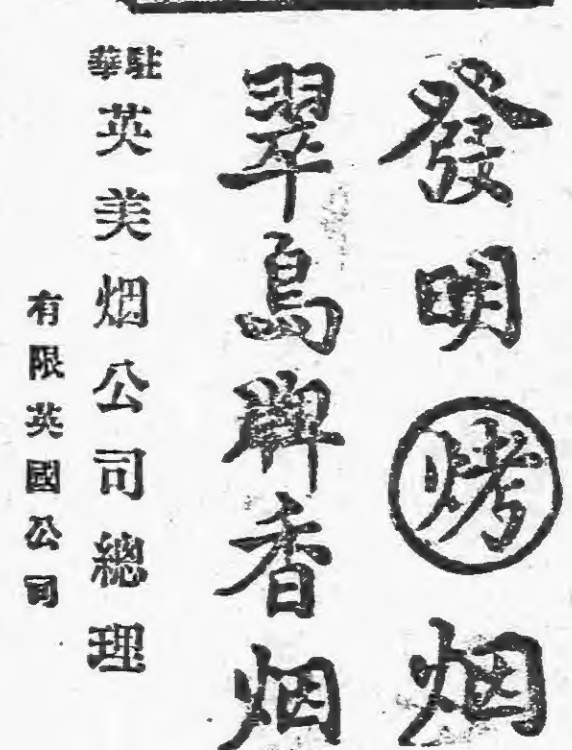 發明烤烟
翠鳥牌香烟
駐華英美烟公司總理
有限英國公司